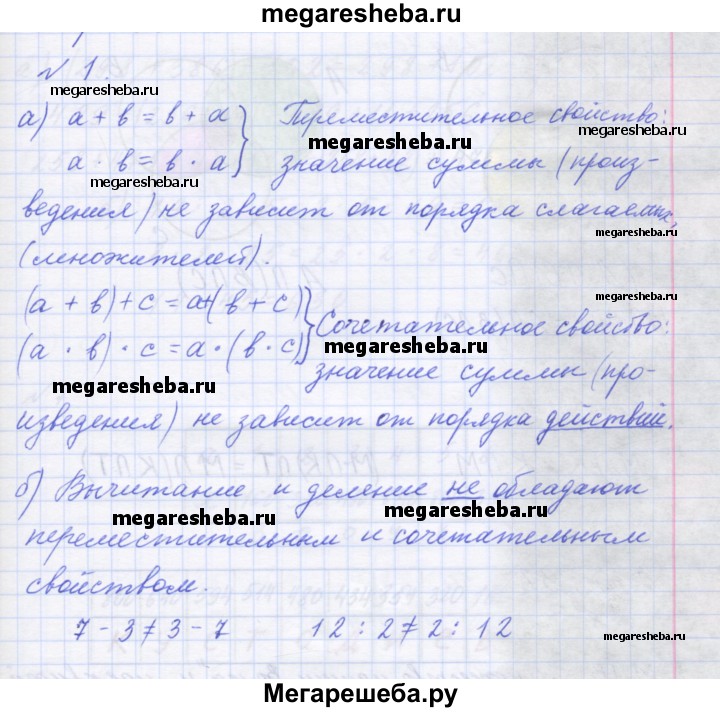 megaresheba.ru
№ 1.
а) а + в = в + а } Переместительное свойство:
megaresheba.ru
megaresheba.ru
а · в = в · а } значение суммы (произ-
megaresheba.ru
ведения) не зависит от порядка слагаемых,
megaresheba.ru
(множителей).
megaresheba.ru
(а + в) + с = а + (в + с) } Сочетательное свойство:
(а · в) · с = а · (в · с) } значение суммы (про-
megaresheba.ru
megaresheba.ru
изведения) не зависит от порядка действий.
б) Вычитание и деление не обладают
megaresheba.ru
megaresheba.ru
переместительным и сочетательным
свойством.
7 - 3 ≠ 3 - 7 12 : 2 ≠ 2 : 12
megaresheba.ru
Мегарешеба.ру